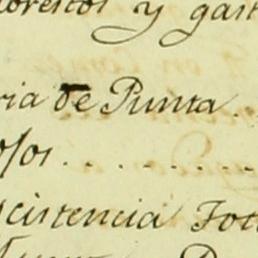 orestos y gast
ria de Punta.
osos. . . . . . .
scistencia Fot